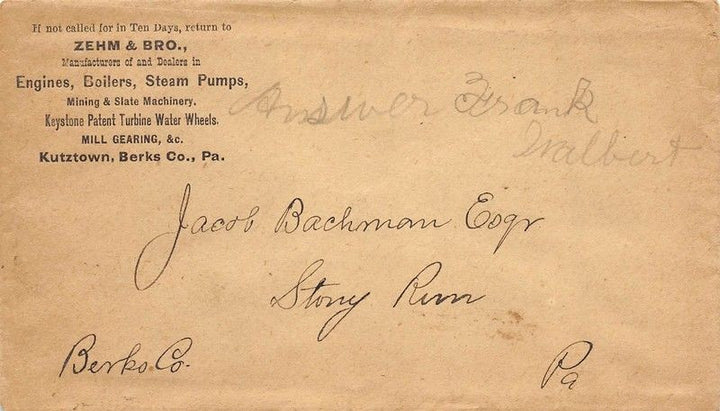 If not called for in Ten Days, return to
ZEHM & BRO.,
Manufacturers of and Dealers in
Engines, Boilers, Steam Pumps,
Mining & Slate Machinery.
Keystone Patent Turbine Water Wheels.
MILL GEARING, &c.
Kutztown, Berks Co., Pa.
Answer Frank
Walbert
Jacob Bachman Esqr
Stony Run
Berks Co. Pa